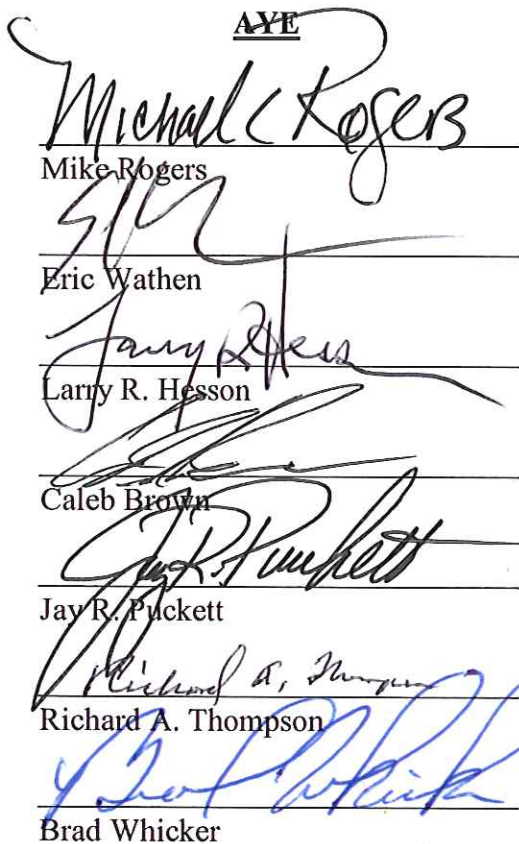 AYE
Michael C Rogers
Mike Rogers
Eric Wathen
Larry R Hesson
Larry R. Hesson
Caleb Brown
Jay R. Puckett
Jay R. Puckett
Richard A. Thompson
Richard A. Thompson
Brad Whicker
Brad Whicker